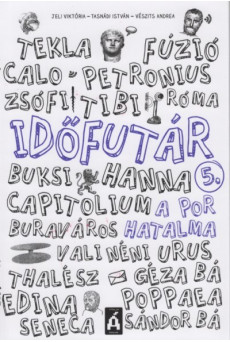 JELI VIKTÓRIA – TASNÁDI ISTVÁN – VÉSZITS ANDREA
TEKLA FÚZIÓ
CALO-PETRONIUS
ZSÓFI TIBI RÓMA
IDŐFUTÁR
BUKSI HANNA 5.
CAPITOLIUM A POR
BURAVÁROS HATALMA
VALI NÉNI URUS
THALÉSZ GÉZA BÁ
EDINA POPPAEA
SENECA SÁNDOR BÁ